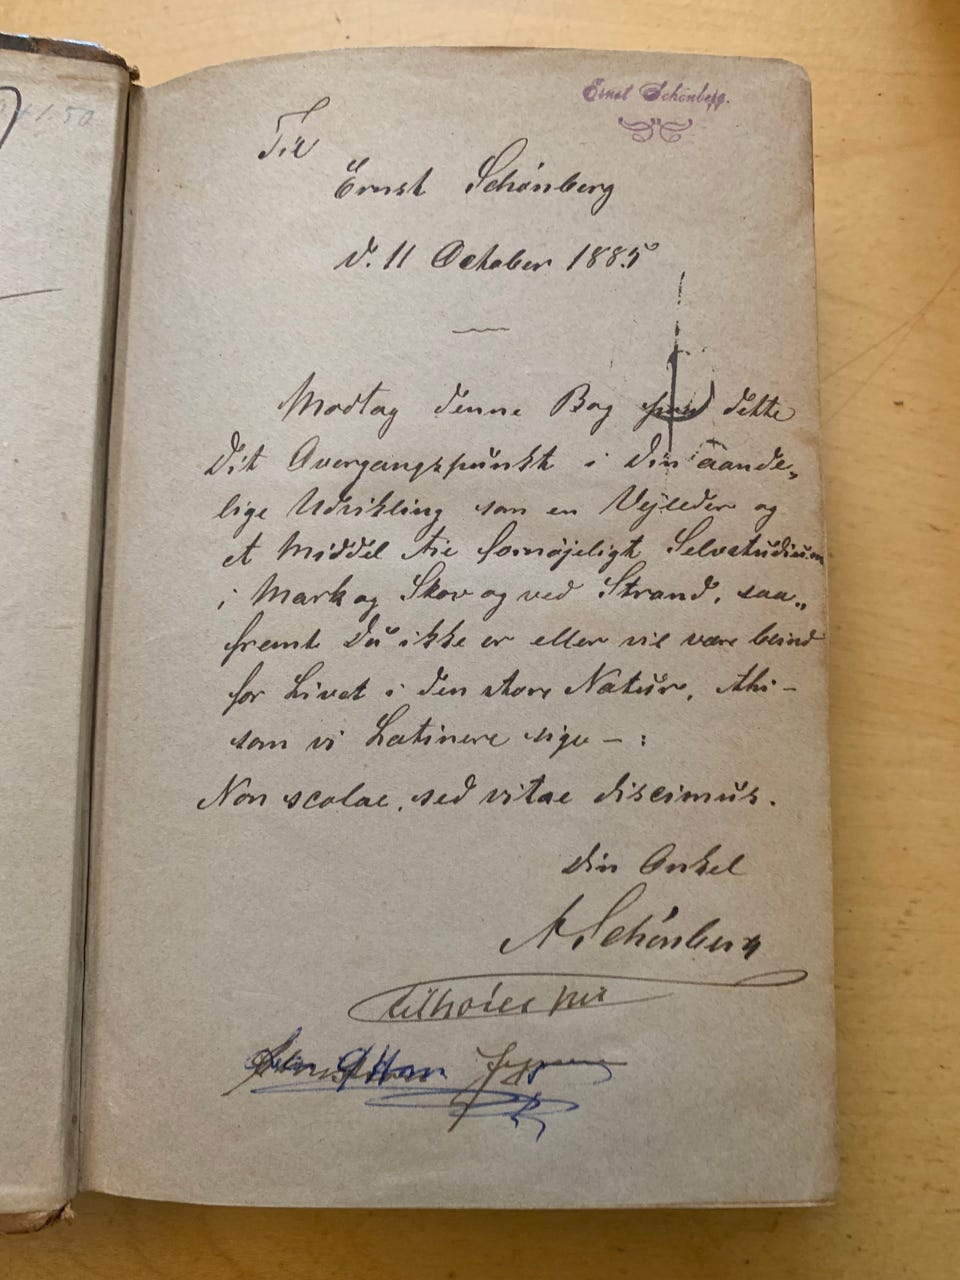 Ernst Schönberg.
1.50
Til
Ernst Schönberg
d. 11 October 1885
Modtag denne Bog paa dette
Dit Overgangspunkt i din aande„
lige Udvikling som en Vejleder og
et Middel til fornøjeligt Selvstudium
i Mark og Skov og ved Strand, saa„
fremt Du ikke er eller vil være blind
for Livet i den store Natur, thi –
som vi Latinere sige – :
Non scolae, sed vitae discimus.
Din Onkel
A Schönberg
tilhører